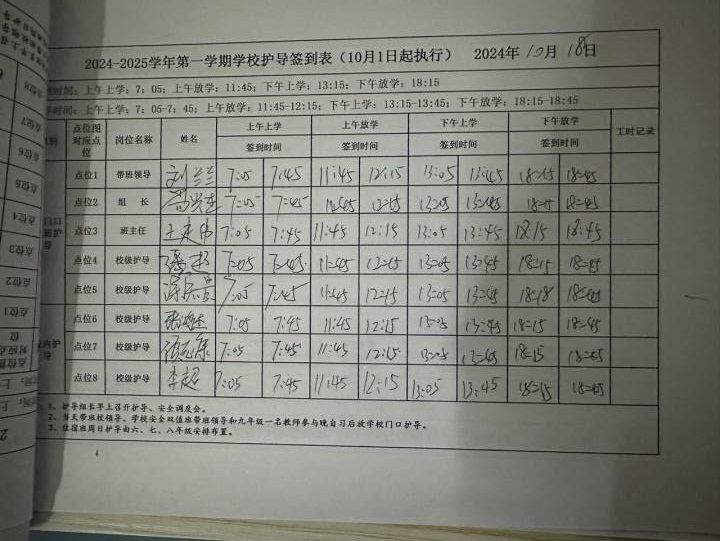 2024-2025学年第一学期学校护导签到表（10月1日起执行） 2024年 10月 18日
时间：上午上学：7：05；上午放学：11:45；下午上学：13:15；下午放学：18:15
时间：上午上学：7：05-7：45；上午放学：11:45-12:15；下午上学：13:15-13:45；下午放学：18:15-18:45
点位图对应点位 岗位名称 姓名 上午上学 上午放学 下午上学 下午放学 工时记录
签到时间 签到时间 签到时间 签到时间
点位1 带班领导 刘兰兰 7:05 7:45 11:45 12:15 13:05 13:45 18:15 18:45
点位2 组 长 7:05 7:45 11:45 12:15 13:05 13:45 18:15 18:45
点位3 班主任 7:05 7:45 11:45 12:15 13:05 13:45 18:15 18:45
点位4 校级护导 7:05 7:45 11:45 12:15 13:05 13:45 18:15 18:45
点位5 校级护导 7:05 7:45 11:45 12:15 13:05 13:45 18:18 18:45
点位6 校级护导 7:05 7:45 11:45 12:15 13:05 13:45 18:15 18:45
点位7 校级护导 7:05 7:45 11:45 12:15 13:05 13:45 18:15 18:45
点位8 校级护导 李超 7:05 7:45 11:45 12:15 13:05 13:45 18:15 18:45
1、护导组长早上召开护导、安全调度会。
2、当天带班校领导、学校安全双值班带班领导和九年级一名教师参与晚自习后放学校门口护导。
3、住宿班周日护导由六、七、八年级安排布置。